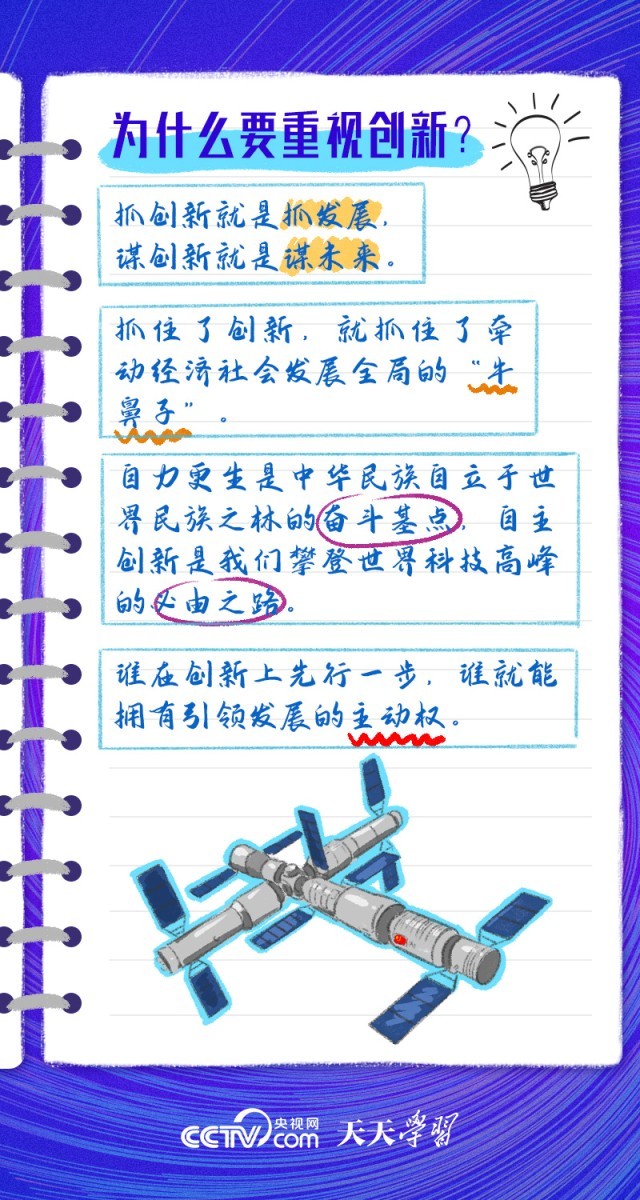 为什么要重视创新?
抓创新就是抓发展,
谋创新就是谋未来。
抓住了创新,就抓住了牵
动经济社会发展全局的“牛
鼻子”。
自力更生是中华民族自立于世
界民族之林的奋斗基点,自主
创新是我们攀登世界科技高峰
的必由之路。
谁在创新上先行一步,谁就能
拥有引领发展的主动权。
CCTV.com 央视网 天天学習